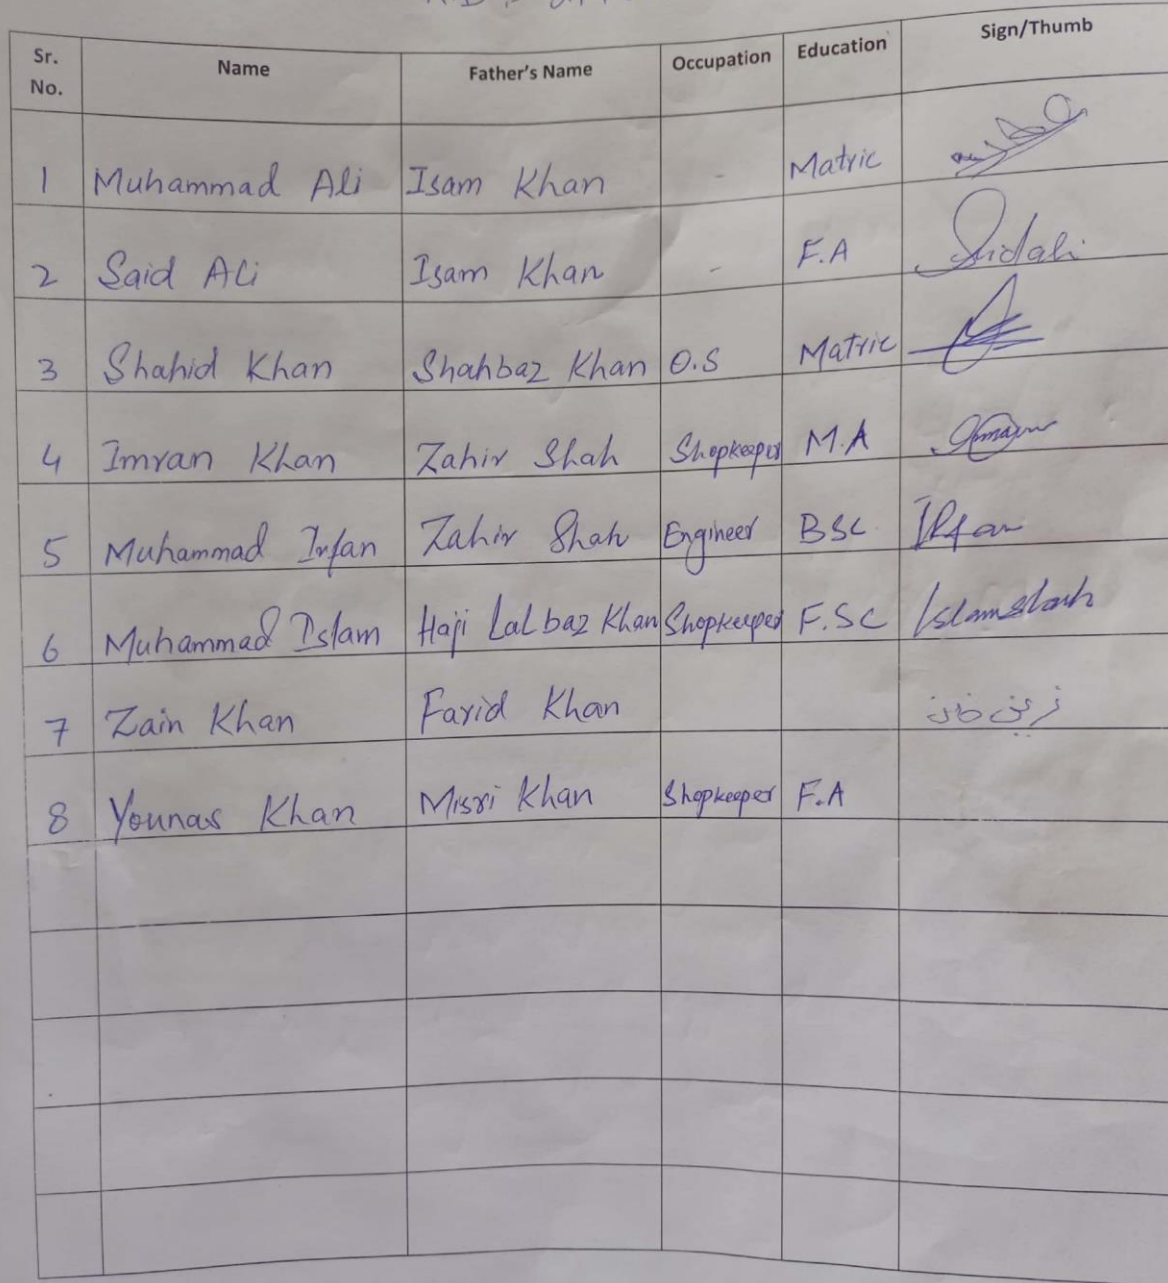 Sr. No. Name Father's Name Occupation Education Sign/Thumb
1 Muhammad Ali Isam Khan - Matric
2 Said Ali Isam Khan - F.A Sidali
3 Shahid Khan Shahbaz Khan O.S Matric
4 Imran Khan Zahir Shah Shopkeeper M.A
5 Muhammad Irfan Zahir Shah Engineer BSC. Irfan
6 Muhammad Islam Haji Lal baz Khan Shopkeeper F.SC Islamshah
7 Zain Khan Farid Khan زین خان
8 Younas Khan Misri Khan Shopkeeper F.A